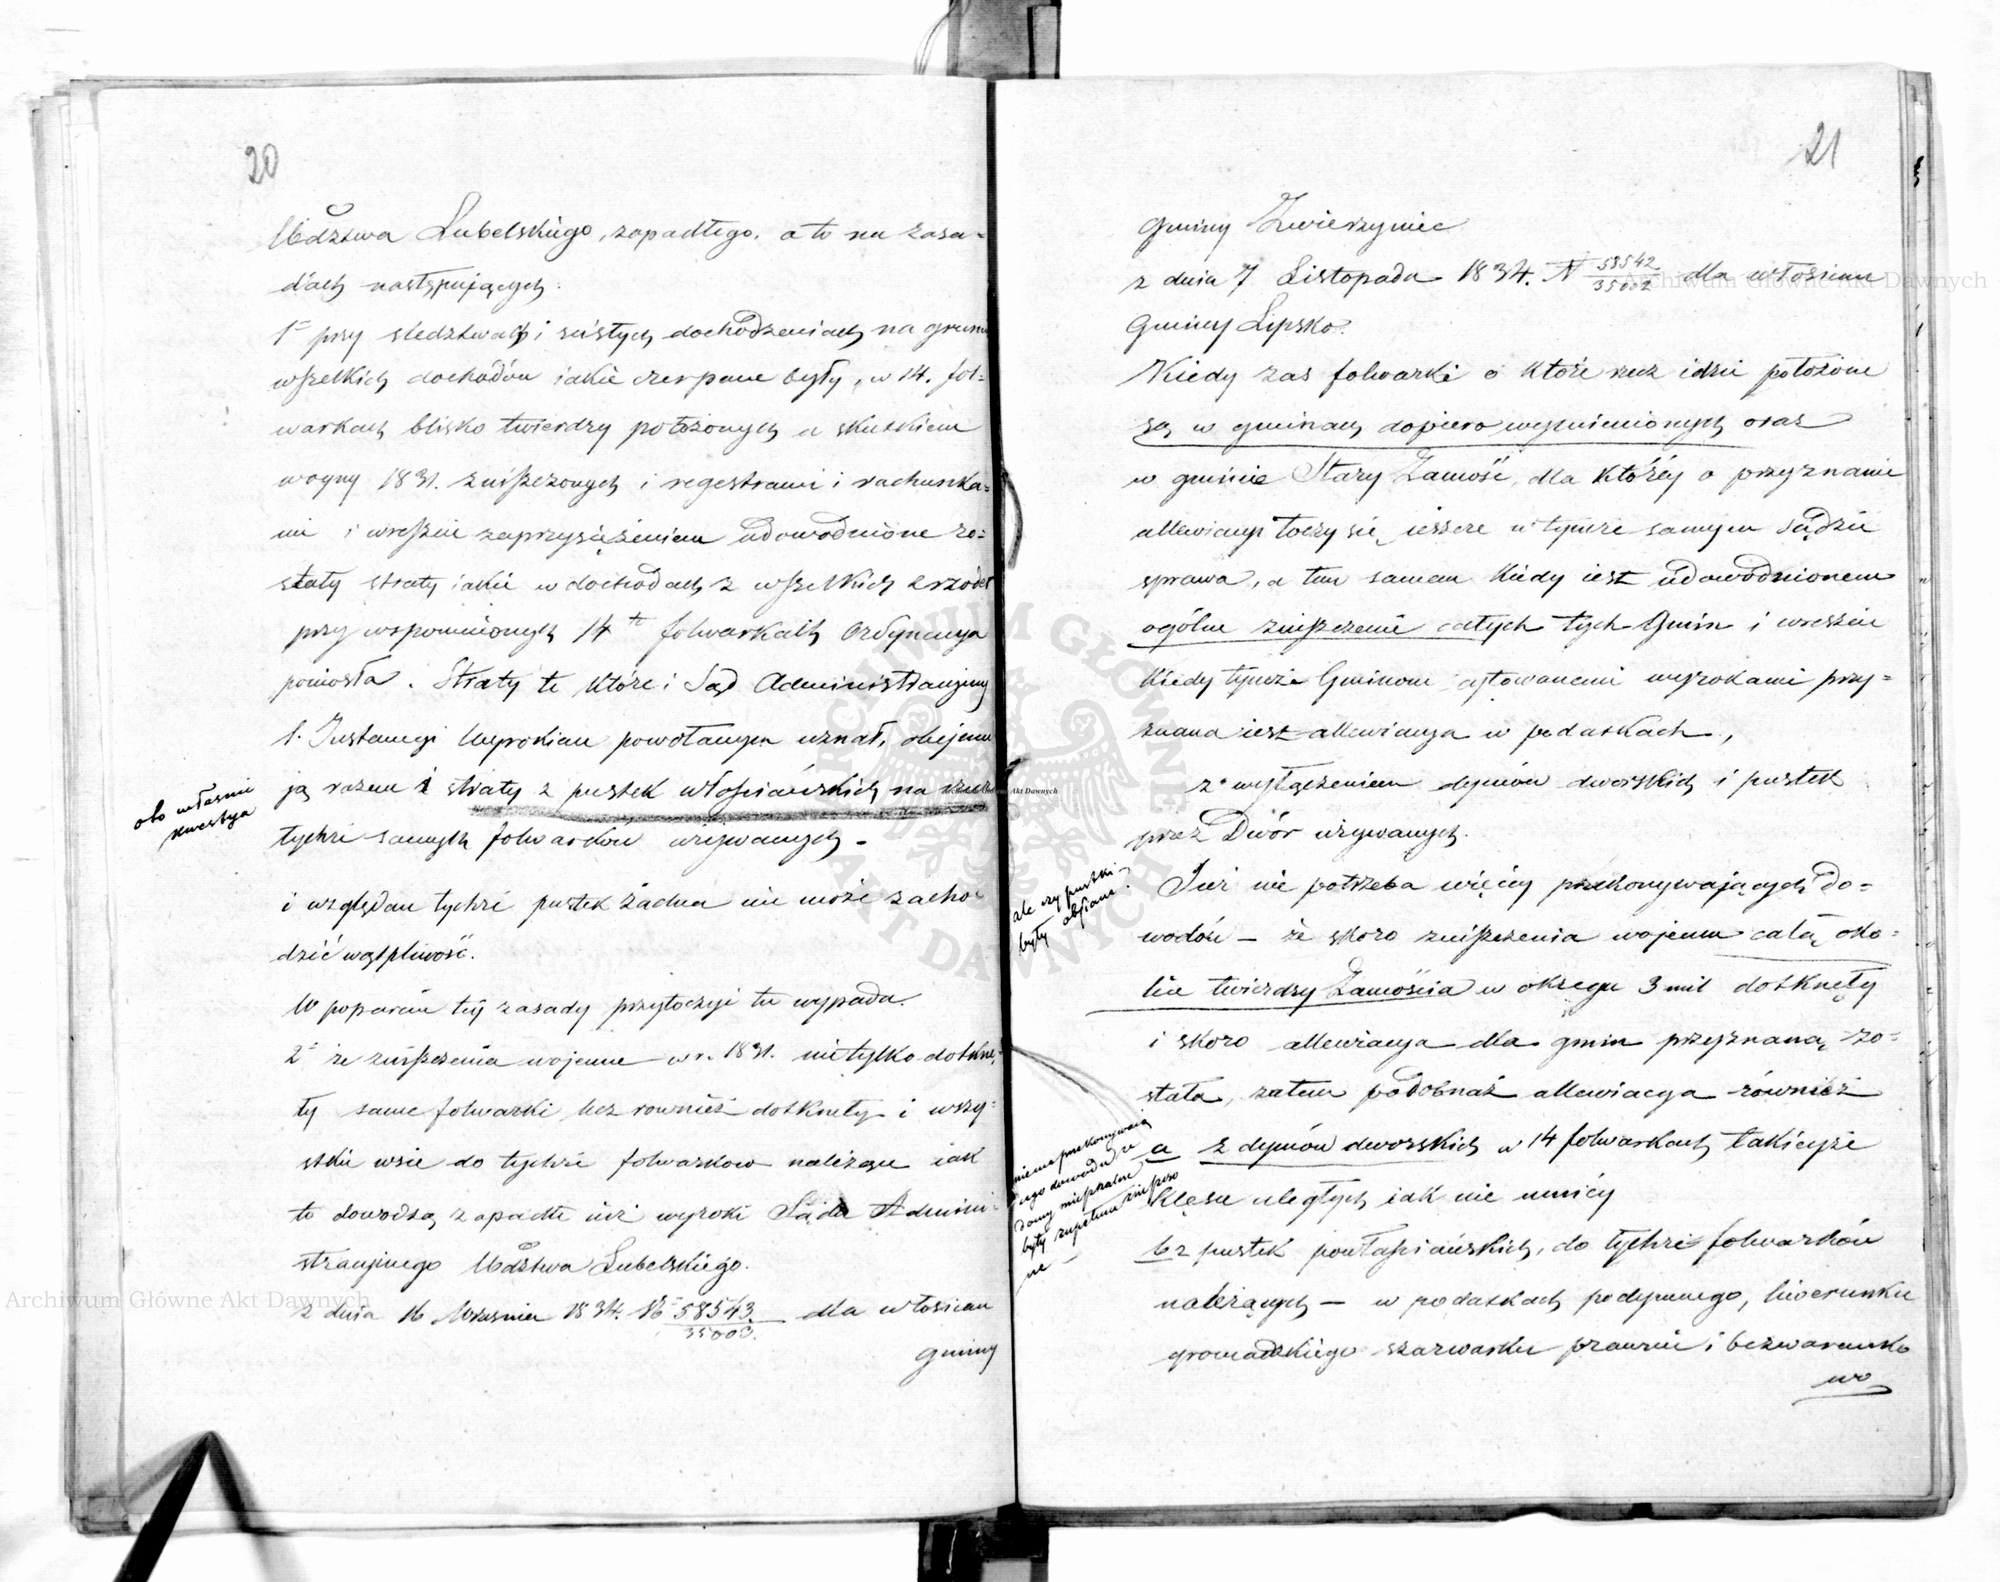 20
Wdztwa Lubelskiego, zapadłego, a to na zasa-
dach następujących:
1e przy śledztwach i ścisłych dochodzeniach na grun
wszelkich dochodów jakie czerpane były, w 14. fol-
warkach blisko twierdzy położonych a skutkiem
woyny 1831. zniszczonych i regestrami i rachunka-
mi i wreszcie zaprzysiężeniem udowodnione zo-
stały straty jakie w dochodach z wszelkich źrzodeł
przy wspomnionych 14tu folwarkach Ordynacya
poniosła. Straty te które i Sąd Administracyjny
1. Instancyi Wyrokiem powołanym uznał, obejmu
ją razem i straty z pustek włościańskich na rzecz
tychże samych folwarków używanych -
i względem tychże pustek żadna nie może zacho-
dzić wątpliwość.
W poparciu tej zasady przytoczyć tu wypada.
2e że zniszczenia wojenne w r. 1831. nie tylko dotknę-
ły same folwarki lecz rownież dotknęły i wszy-
stkie wsie do tychże folwarkow należące jak
to dowodzą zapadłe już wyroki Sądu Admini-
stracyjnego Wdztwa Lubelskiego.
z dnia 16 Września 1834. No 58543. dla włościan
35000.
gminy
oto właśnie
kwestya
21
Gminy Zwierzyniec
z dnia 7 Listopada 1834. N 58542 dla włościan
35002
Gminy Lipsko.
Kiedy zas folwarki o które rzecz idzie położone
są w gminach dopiero wymienionych oraz
w gminie Stary Zamość, dla któréy o przyznanie
allewiacyi toczy się ieszcze w tymże samym Sądzie
sprawa, a tem samem kiedy iest udowodnionem
ogólne zniszczenie całych tych Gmin i wreszcie
Kiedy tymże Gminom cytowanemi wyrokami przy-
znana iest allewiacya w podatkach,
z wyłączeniem dymów dworskich i pustek
przez Dwór używanych.
Już nie potrzeba więcéy przekonywających do-
wodów - że skoro zniszczenia wojenne całą oko-
licę twierdzy Zamościa w okręgu 3 mil dotknęły
i skoro allewiacya dla gmin przyznaną zo-
stała, zatem podobnaż allewiacya również
a z dymów dworskich w 14 folwarkach takieyże
klęsce uległych iak nie mniéy
b z pustek powłościańskich, do tychże folwarków
należących - w podatkach podymnego, liwerunku
gromadzkiego szarwarku prawnie i bezwarunko
wo
ale czy pustki
były obsiane?
niema przekonywają
cego dowodu że
domy mieszkalne
były zupełnie zniszczo
ne -
Archiwum Główne Akt Dawnych
Archiwum Główne Akt Dawnych
ARCHIWUM GŁÓWNE AKT DAWNYCH